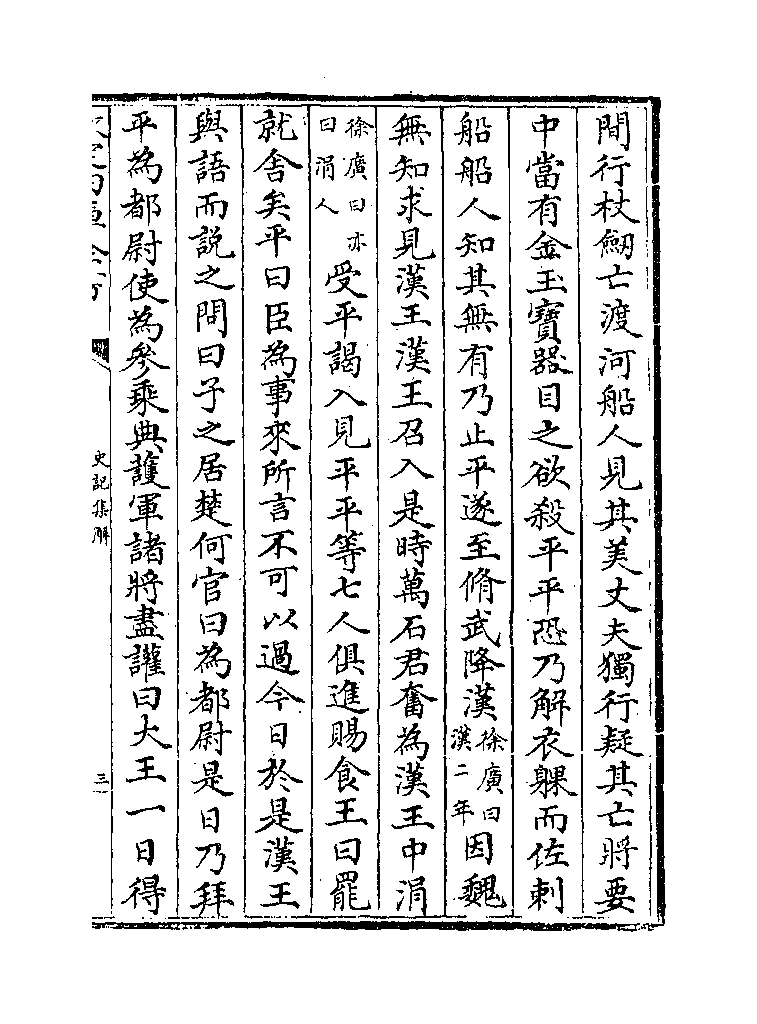 間行杖劒亡渡河船人見其美丈夫獨行疑其亡將要
中當有金玉寶器目之欲殺平平恐乃解衣躶而佐刺
船船人知其無有乃止平遂至脩武降漢徐廣曰漢二年因魏
無知求見漢王漢王召入是時萬石君奮為漢王中涓
徐廣曰亦曰涓人受平謁入見平平等七人俱進賜食王曰罷
就舍矣平曰臣為事來所言不可以過今日於是漢王
與語而說之問曰子之居楚何官曰為都尉是日乃拜
平為都尉使為參乘典護軍諸將盡讙曰大王一日得
史記集解
三